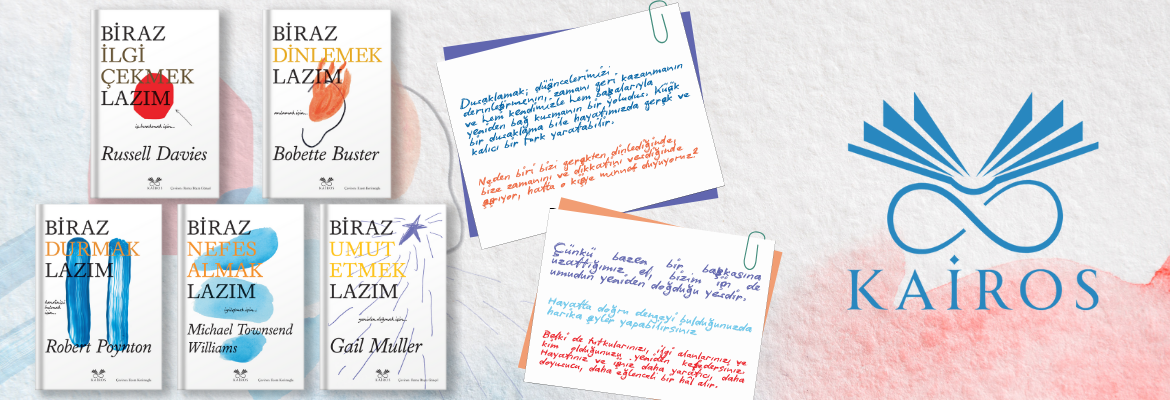 BİRAZ
İLGİ
ÇEKMEK
LAZIM
Russell Davies
KAİROS
BİRAZ
DİNLEMEK
LAZIM
anlamak için...
Bobette Buster
KAİROS
BİRAZ
DURMAK
LAZIM
kendini
bulmak
için...
Robert Poynton
KAİROS
BİRAZ
NEFES
ALMAK
LAZIM
iyileşmek için...
Michael Townsend
Williams
KAİROS
BİRAZ
UMUT
ETMEK
LAZIM
yeniden doğmak için...
Gail Muller
KAİROS
Duraklamak; düşüncelerimizi
derinleştirmenin, zamanı geri kazanmanın
ve hem kendimizle hem başkalarıyla
yeniden bağ kurmanın bir yoludur. Küçük
bir duraklama bile hayatımızda gerçek ve
kalıcı bir fark yaratabilir.
Neden biri bizi gerçekten dinlediğinde,
bize zamanını ve dikkatini verdiğinde
şaşırıyor, hatta o kişiye minnet duyuyoruz?
Çünkü bazen bir başkasına
uzattığımız el, bizim için de
umudun yeniden doğduğu yerdir.
Hayatta doğru dengeyi bulduğunuzda
harika şeyler yapabilirsiniz
Belki de tutkularınızı, ilgi alanlarınızı ve
kim olduğunuzu yeniden keşfedersiniz.
Hayatınız ve işiniz daha yaratıcı, daha
doyurucu, daha eğlenceli bir hal alır.
KAİROS